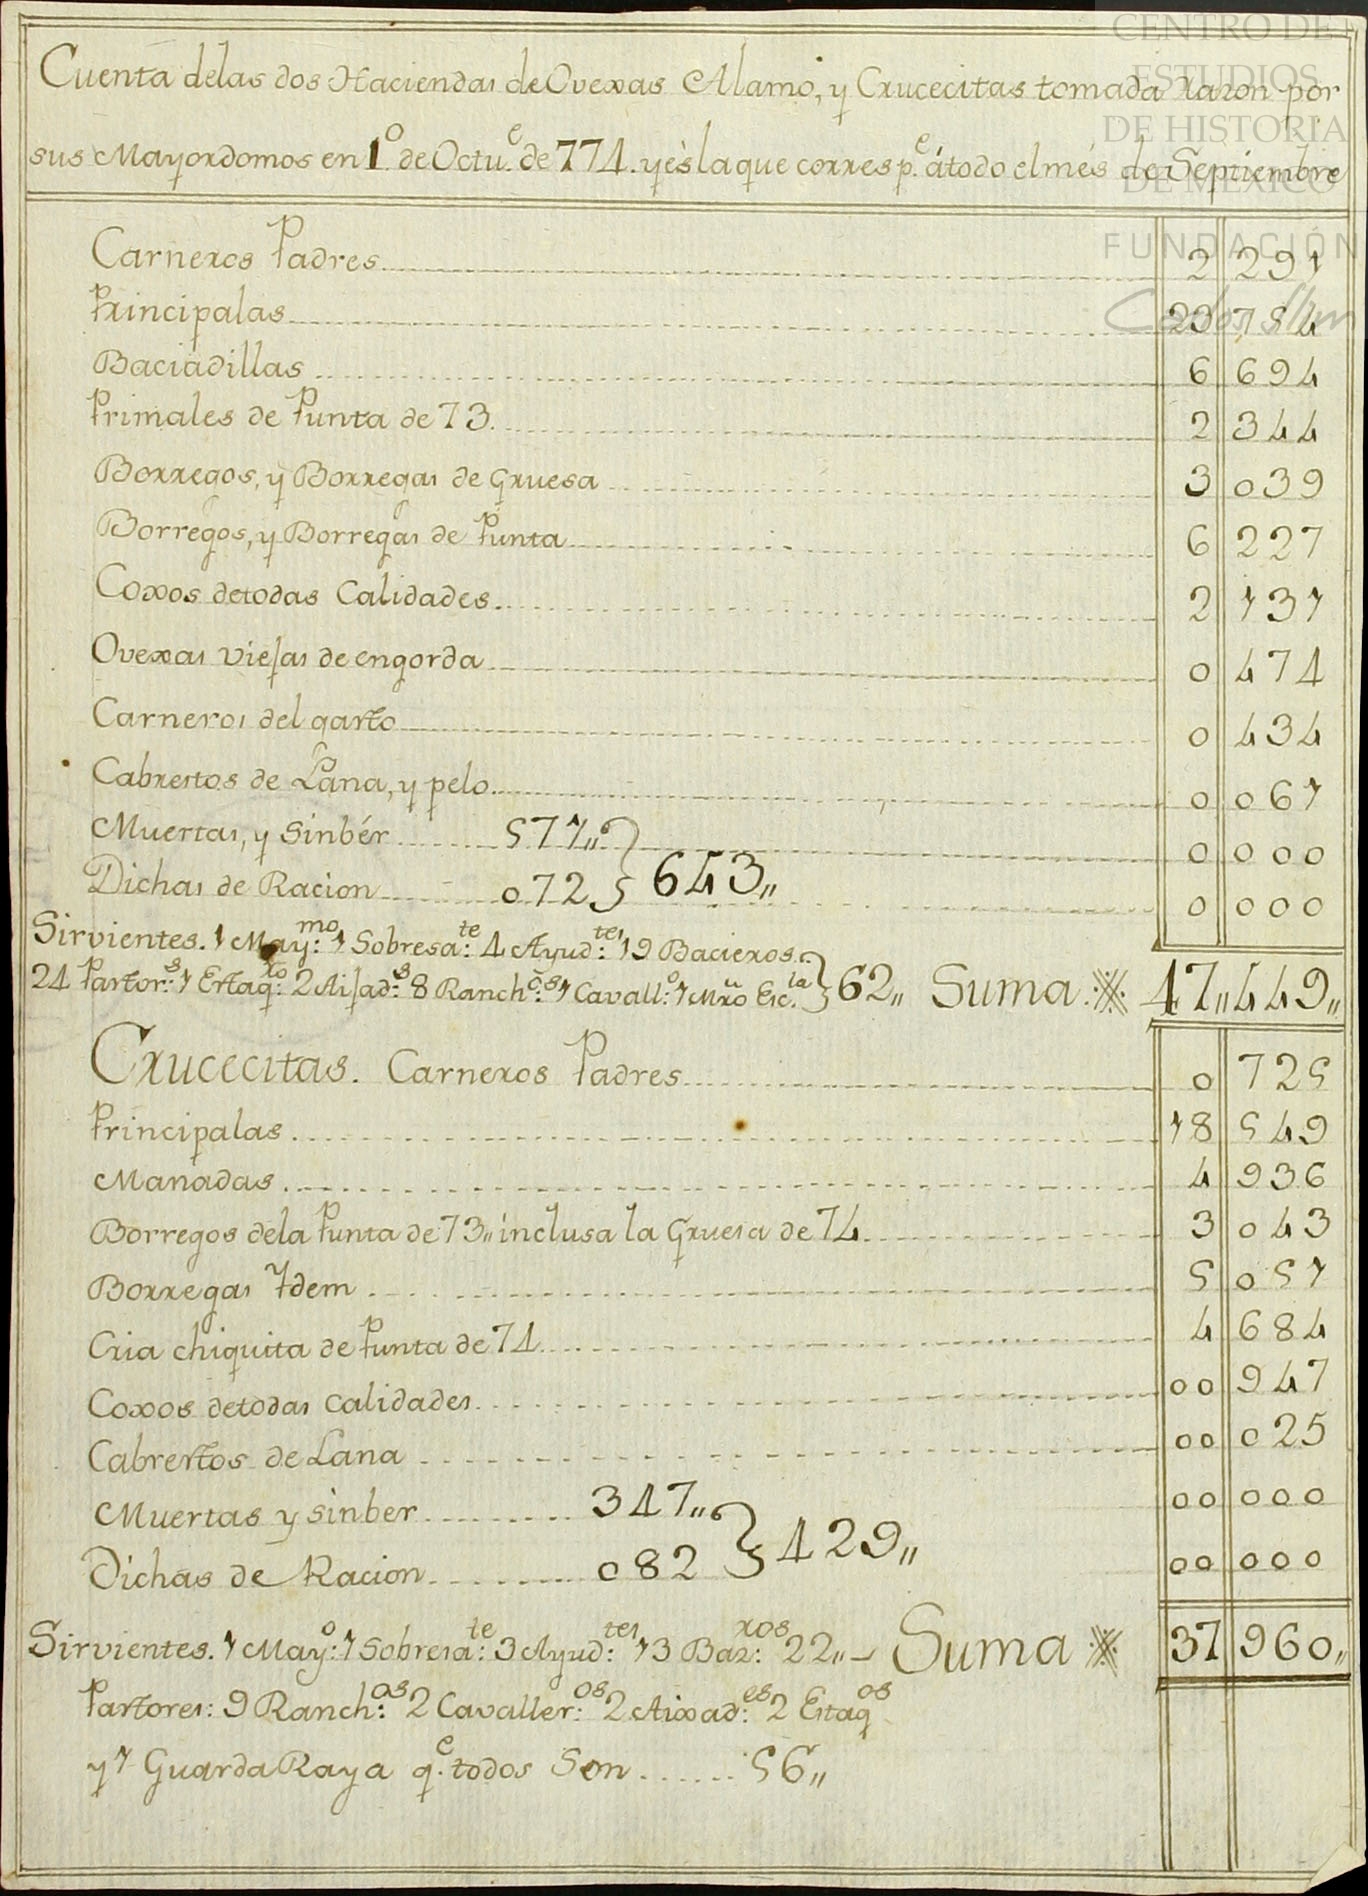 CENTRO DE
ESTUDIOS
DE HISTORIA
DE MÉXICO
FUNDACIÓN
Carlos Slim
Cuenta delas dos Haciendas de Ovexas Alamo, y Crucecitas tomada razon por
sus Mayordomos en 1º. de Octu.e de 774. y és la que corresp.e átodo el més de Septiembre
Carneros Padres 2 291
Principalas 23 754
Baciadillas 6 694
Primales de Punta de 73. 2 344
Borregos, y Borregas de gruesa 3 039
Borregos, y Borregas de Punta 6 227
Coxos detodas Calidades. 2 131
Ovexas viejas de engorda 0 474
Carneros del gasto 0 434
Cabrestos de Lana, y pelo. 0 061
Muertas, y Sinbér 571„ 0 000
Dichas de Racion 072 } 643„ 0 000
Sirvientes. 1 May:mo 1 Sobresa:te 4 Ayud:tes 19 Bacieros.
24 Pastor:s 1 Estaq:ro 2 Aijad:s 8 Ranch:os 1 Cavall:o 1 Mro Esc.la } 62„ Suma. 47„449„
Crucecitas. Carneros Padres 0 725
Principalas 18 549
Manadas 4 936
Borregos dela Punta de 73„ inclusa la gruesa de 74 3 043
Borregas Ydem 5 051
Cria chiquita de Punta de 74 4 684
Coxos detodas calidades 00 947
Cabrestos de Lana 00 025
Muertas y sinber 347„ 00 000
Dichas de Racion 082 } 429„ 00 000
Sirvientes. 1 May:o 1 Sobresa:te 3 Ayud:tes 13 Baz:ros 22„ Suma 37 960„
Pastores: 9 Ranch:os 2 Cavaller:os 2 Aixad:es 2 Estaq os
y 1 Guarda Raya q.e todos Son 56„